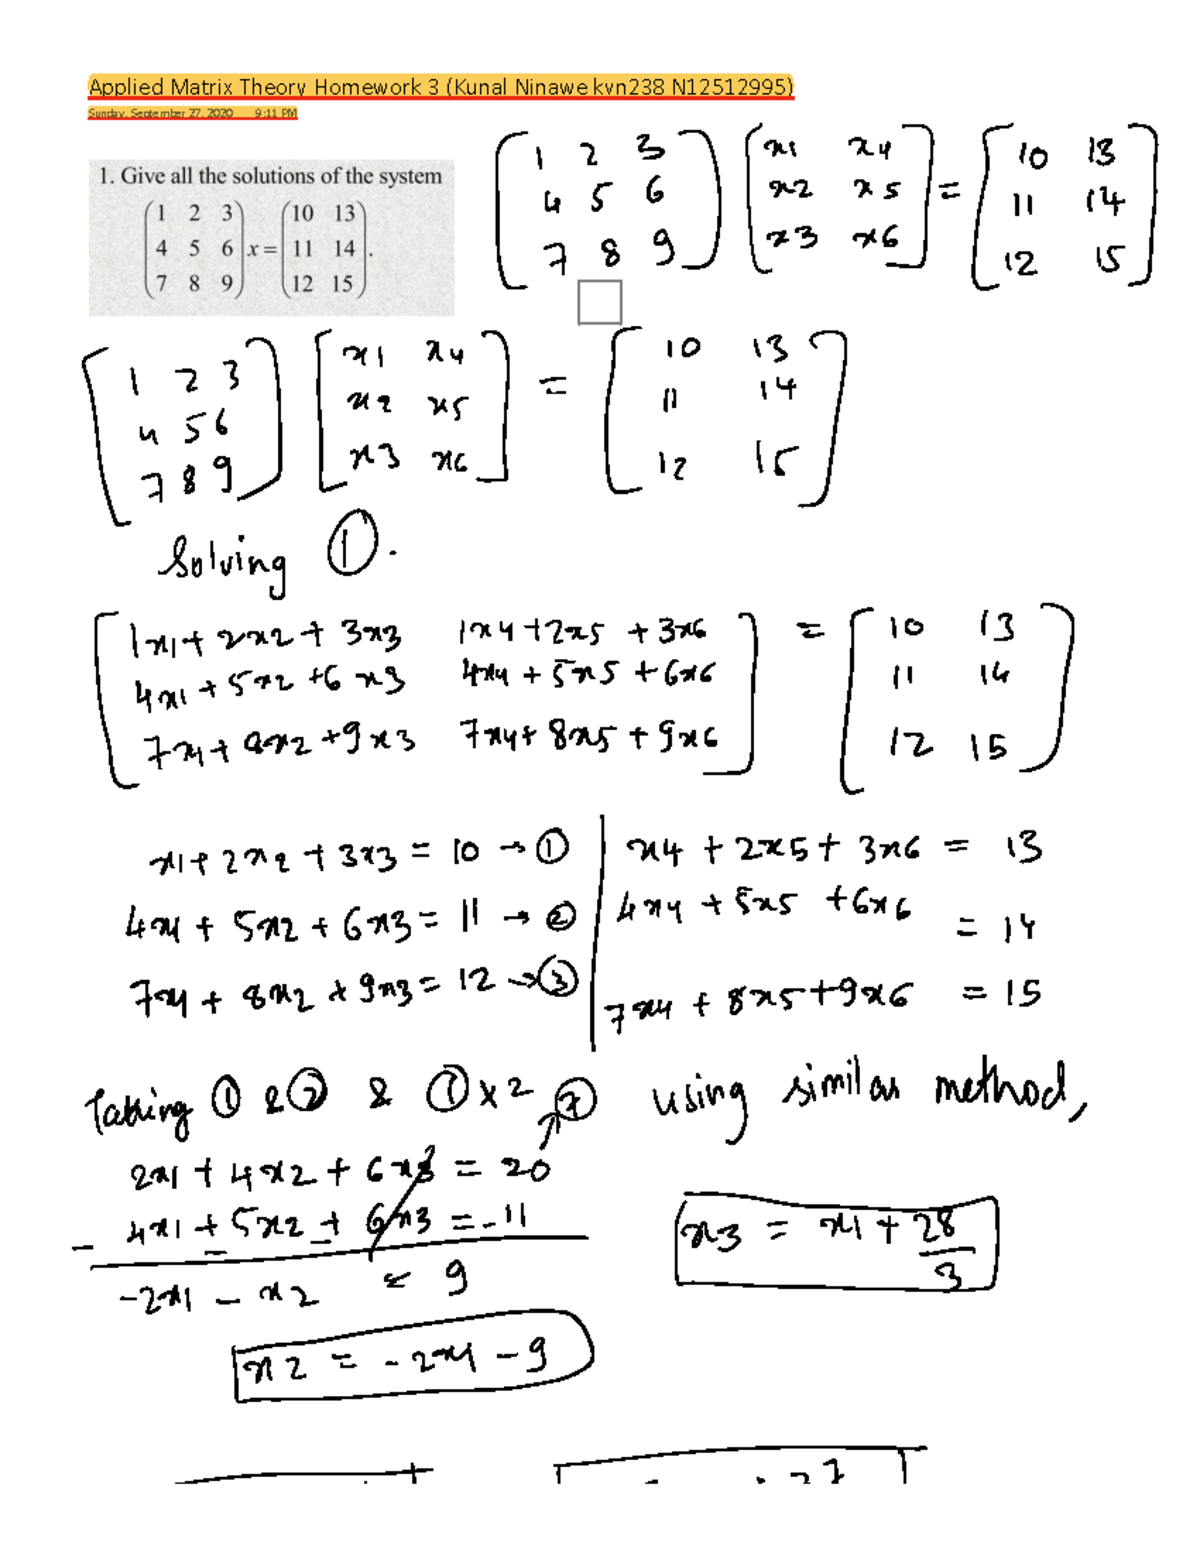 Applied Matrix Theory Homework 3 (Kunal Ninawe kvn238 N12512995)
Sunday, September 27, 2020 9:11 PM
1. Give all the solutions of the system
(1 2 3) (10 13)
(4 5 6) x = (11 14).
(7 8 9) (12 15)
[1 2 3] [x1 x4] = [10 13]
[4 5 6] [x2 x5] [11 14]
[7 8 9] [x3 x6] [12 15]
[1 2 3] [x1 x4] = [10 13]
[4 5 6] [x2 x5] [11 14]
[7 8 9] [x3 x6] [12 15]
Solving ①.
[1x1 + 2x2 + 3x3 1x4 + 2x5 + 3x6] = [10 13]
[4x1 + 5x2 + 6x3 4x4 + 5x5 + 6x6] [11 14]
[7x1 + 8x2 + 9x3 7x4 + 8x5 + 9x6] [12 15]
x1 + 2x2 + 3x3 = 10 → ①
4x1 + 5x2 + 6x3 = 11 → ②
7x1 + 8x2 + 9x3 = 12 → ③
x4 + 2x5 + 3x6 = 13
4x4 + 5x5 + 6x6 = 14
7x4 + 8x5 + 9x6 = 15
Taking ① & ② & ① x 2
2x1 + 4x2 + 6x3 = 20
- 4x1 + 5x2 + 6x3 = -11
-2x1 - x2 = 9
x2 = -2x1 - 9
using similar method,
x3 = x1 + 28/3